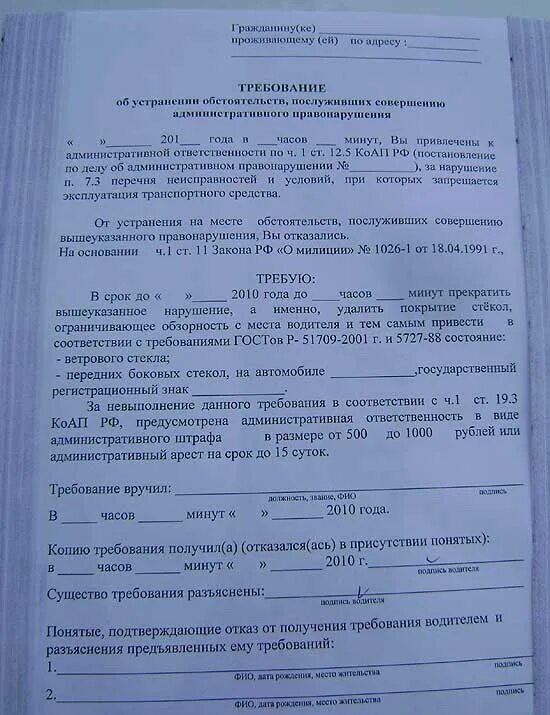 Гражданину(ке) ____________________
проживающему (ей) по адресу : __________
____________________
ТРЕБОВАНИЕ
об устранении обстоятельств, послуживших совершению
административного правонарушения
« »_______ 201___ года в ___часов ___ минут, Вы привлечены к
административной ответственности по ч. 1 ст. 12.5 КоАП РФ (постановление
по делу об административном правонарушении №__________), за нарушение
п. 7.3 перечня неисправностей и условий, при которых запрещается
эксплуатация транспортного средства.
От устранения на месте обстоятельств, послуживших совершению
вышеуказанного правонарушения, Вы отказались.
На основании ч.1 ст. 11 Закона РФ «О милиции» № 1026-1 от 18.04.1991 г.,
ТРЕБУЮ:
В срок до « »_____ 2010 года до ____часов ____ минут прекратить
вышеуказанное нарушение, а именно, удалить покрытие стёкол,
ограничивающее обзорность с места водителя и тем самым привести в
соответствии с требованиями ГОСТов Р- 51709-2001 г. и 5727-88 состояние:
- ветрового стекла;
- передних боковых стекол, на автомобиле ____________,государственный
регистрационный знак _____________.
За невыполнение данного требования в соответствии с ч.1 ст. 19.3
КоАП РФ, предусмотрена административная ответственность в виде
административного штрафа в размере от 500 до 1000 рублей или
административный арест на срок до 15 суток.
Требование вручил: ____________________
должность, звание, ФИО подпись
В _____ часов ______ минут « » _______ 2010 года.
Копию требования получил(а) (отказался(ась) в присутствии понятых):
в _____ часов ______ минут « » ________ 2010 г.__________
подпись водителя
Существо требования разъяснены:______________
подпись водителя
Понятые, подтверждающие отказ от получения требования водителем и
разъяснения предъявленных ему требований:
1.____________________
ФИО, дата рождения, место жительства подпись
2.____________________
ФИО, дата рождения, место жительства подпись